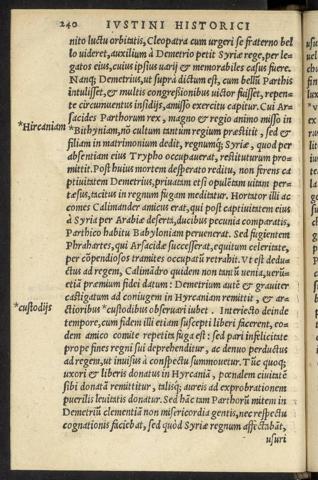 240 IVSTINI HISTORICI
nito luctu orbitatis, Cleopatra cum urgeri se fraterno bel
lo uideret, auxilium à Demetrio petit Syriæ rege, per le=
gatos eius, cuius ipsius uarij & memorabiles casus fuere.
Nanq; Demetrius, ut suprà dictum est, cum bellũ Parthis
intulisset, & multis congreßionibus uictor fuisset, repen=
te circumuentus insidijs, amisso exercitu capitur. Cui Ar=
sacides Parthorum rex, magno & regio animo misso in
*Hircaniam *Bithyniam, nõ cultum tantum regium præstitit, sed &
filiam in matrimonium dedit, regnumq; Syriæ, quod per
absentiam eius Trypho occupauerat, restituturum pro=
mittit. Post huius mortem desperato reditu, non ferens ca
ptiuitatem Demetrius, priuatam etsi opulẽtam uitam per=
tæsus, tacitus in regnum fugam meditatur. Hortator illi ac
comes Calimander amicus erat, qui post captiuitatem eius
à Syria per Arabiæ deserta, ducibus pecunia comparatis,
Parthico habitu Babyloniam peruenerat. Sed fugientem
Phrahartes, qui Arsacidæ successerat, equitum celeritate,
per cõpendiosos tramites occupatũ retrahit. Vt est dedu=
ctus ad regem, Calimãdro quidem non tantũ uenia, uerù=
etiã præmium fidei datum: Demetrium autẽ & grauiter
castigatum ad coniugem in Hyrcaniam remittit, & ar=
*custodijs ctioribus *custodibus obseruari iubet. Interiecto deinde
tempore, cum fidem illi etiam suscepti liberi facerent, eo=
dem amico comite repetita fuga est: sed pari infelicitate
prope fines regni sui deprehenditur, ac denuo perductus
ad regem, ut inuisus à conspectu summouetur. Tũc quoq;
uxori & liberis donatus in Hyrcaniã, pœnalem ciuitatẽ
sibi donatã remittitur, talisq; aureis ad exprobrationem
puerilis leuitatis donatur. Sed hãc tam Parthorũ mitem in
Demetriũ clementiã non misericordia gentis, nec respectu
cognationis faciebat, sed quòd Syriæ regnum affectabãt,
usuri